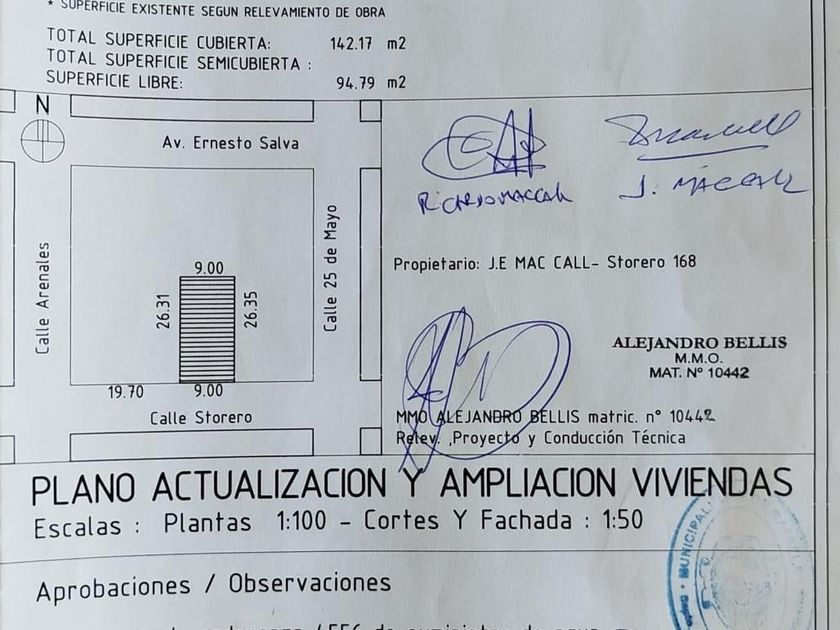 * SUPERFICIE EXISTENTE SEGUN RELEVAMIENTO DE OBRA
TOTAL SUPERFICIE CUBIERTA: 142.17 m2
TOTAL SUPERFICIE SEMICUBIERTA :
SUPERFICIE LIBRE: 94.79 m2
N
Av. Ernesto Salva
Calle Arenales
Calle 25 de Mayo
9.00
26.31
26.35
19.70
9.00
Calle Storero
J. MACCALL
Propietario: J.E MAC CALL- Storero 168
ALEJANDRO BELLIS
M.M.O.
MAT. Nº 10442
MMO ALEJANDRO BELLIS matric. n° 10442
Relev. ,Proyecto y Conducción Técnica
PLANO ACTUALIZACION Y AMPLIACION VIVIENDAS
Escalas : Plantas 1:100 - Cortes Y Fachada : 1:50
Aprobaciones / Observaciones